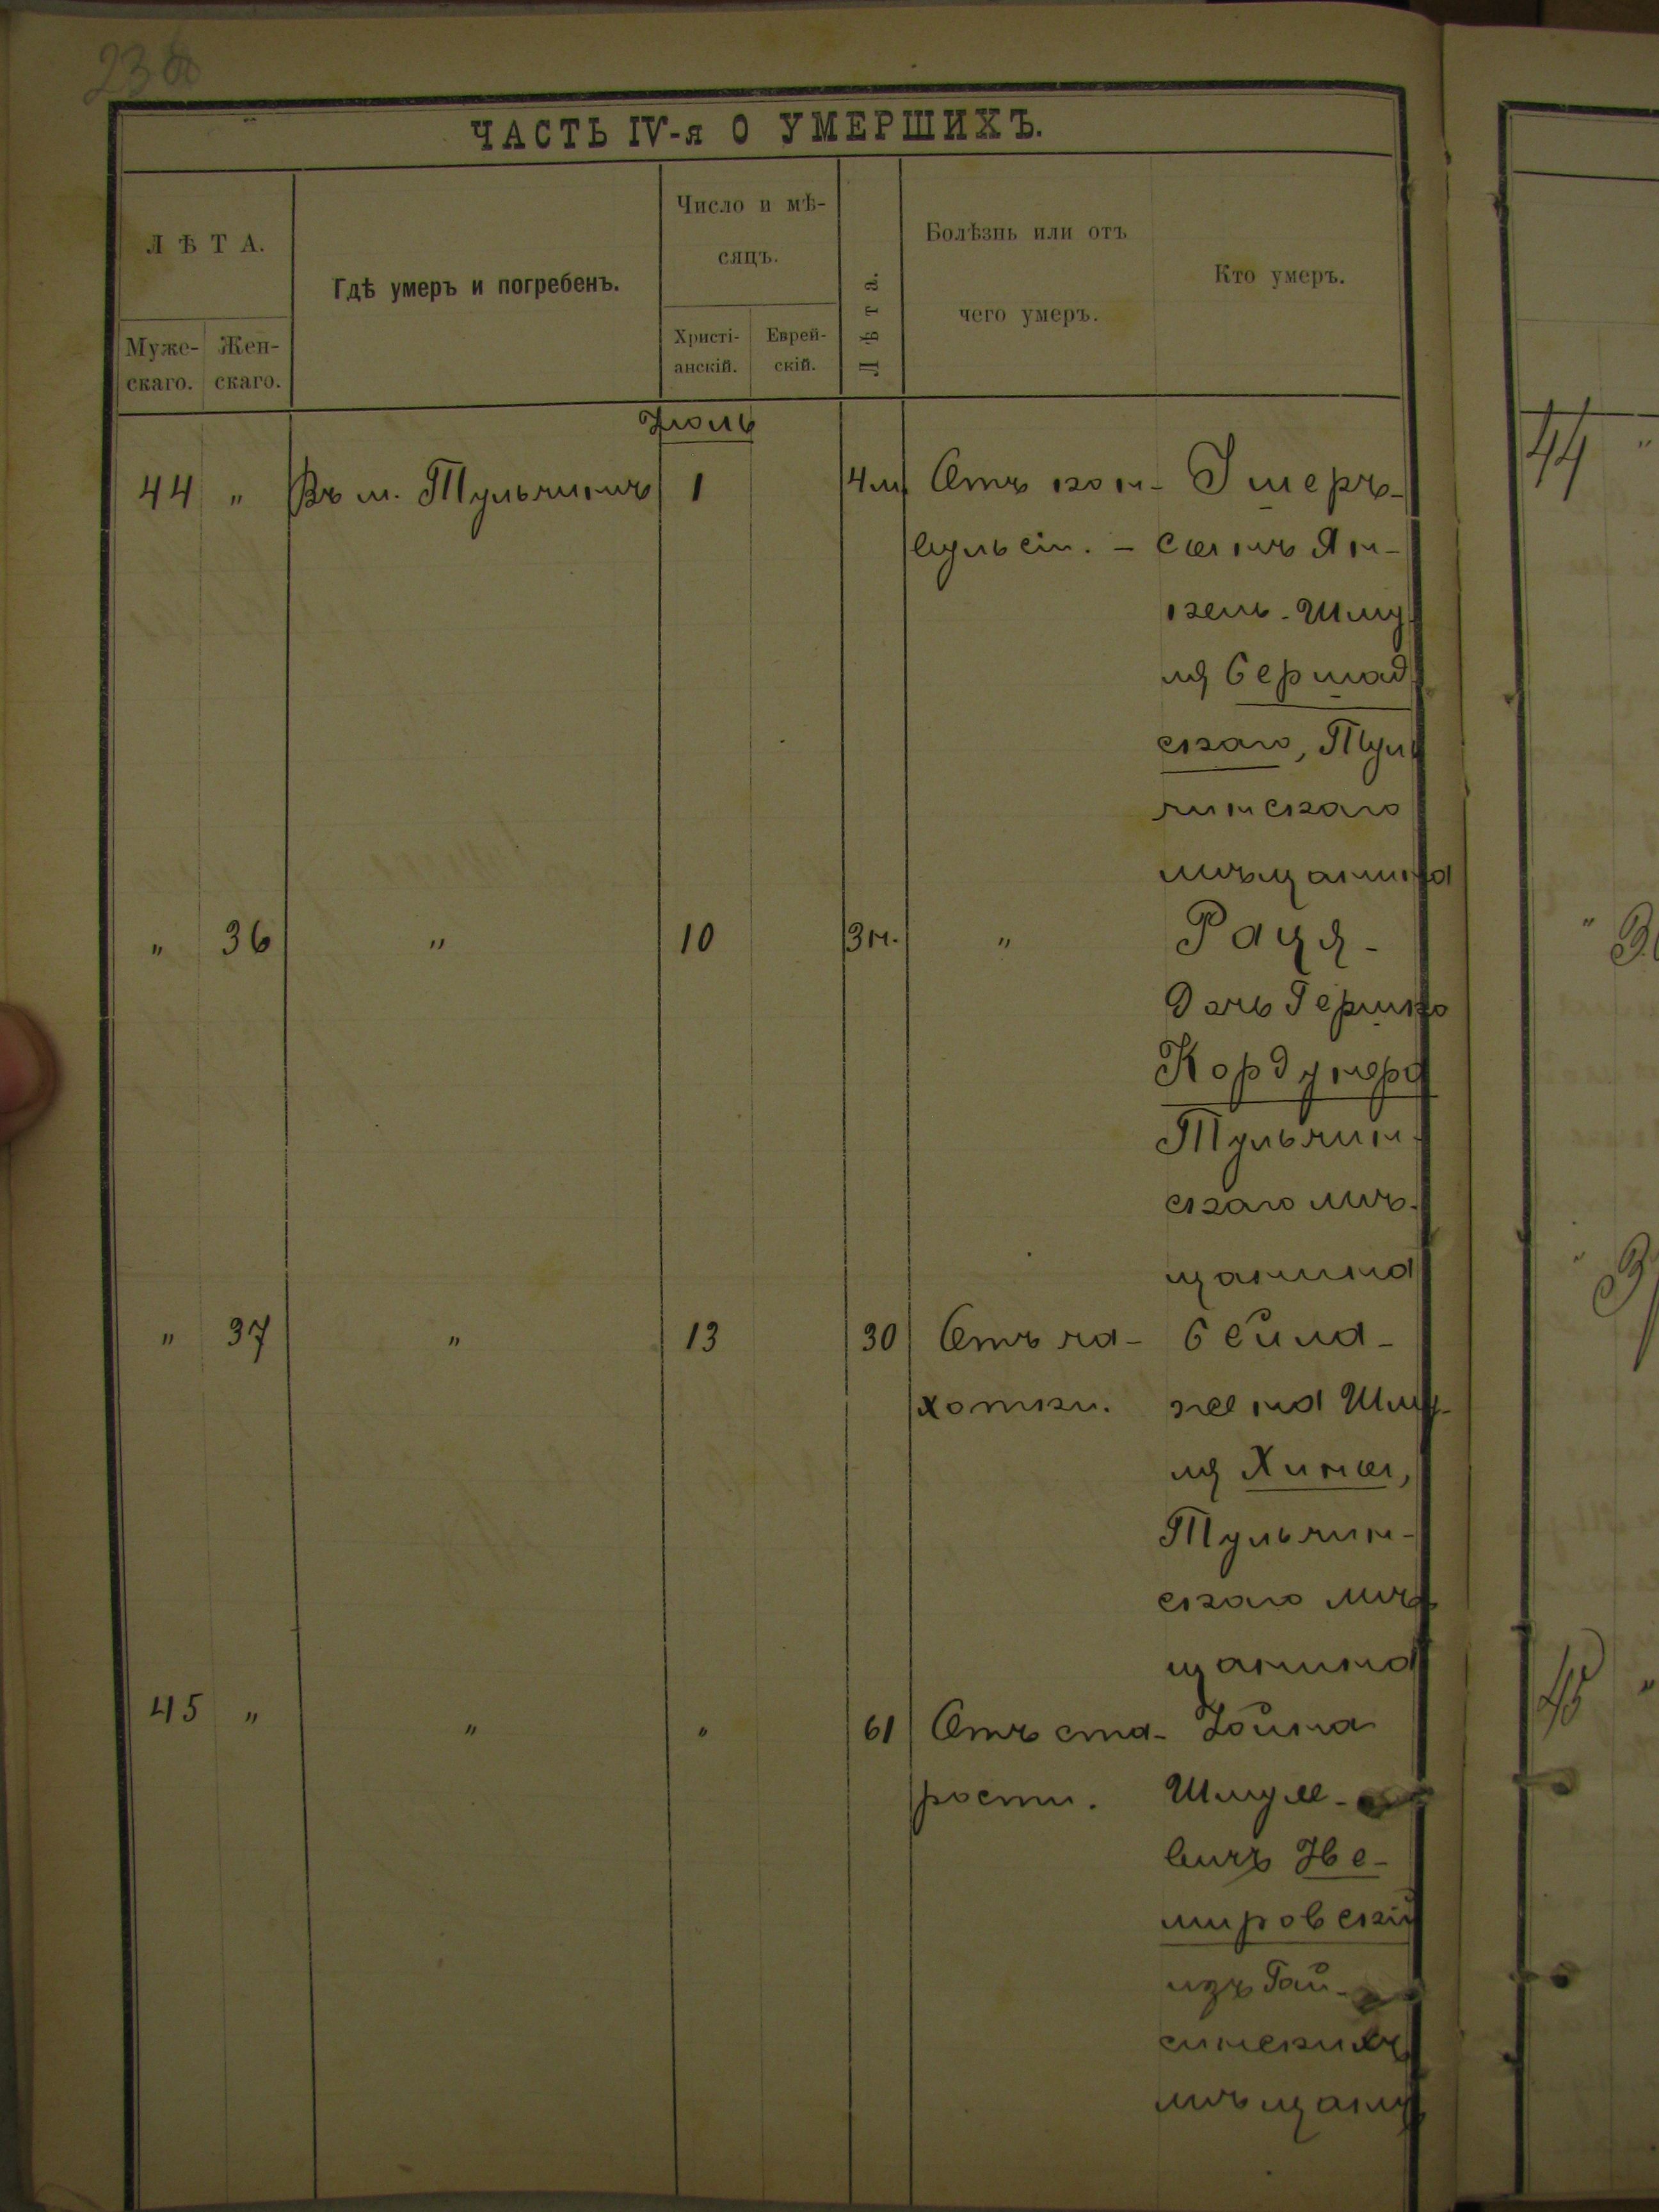 ЧАСТЬ IV-я О УМЕРШИХЪ.
ЛѢТА.
Муже-
скаго.
Жен-
скаго.
Гдѣ умеръ и погребенъ.
Число и мѣ-
сяцъ.
Христі-
анскій.
Еврей-
скій.
Лѣта.
Болѣзнь или отъ
чего умеръ.
Кто умеръ.
Іюль
44 " Въ м. Тульчинѣ 1 4 м. Отъ кон- Шмеръ-
вульсіи. - сынъ Ян-
кель-Шму
ля Бершад
скаго, Туль
чинскаго
мѣщанина
" 36 " 10 3 м. " Раця-
дочь Гершко
Кордунера
Тульчин-
скаго мѣ-
щанина
" 37 " 13 30 Отъ ча- Бейла-
хотки. жена Шму-
ля Хины,
Тульчин-
скаго мѣ
щанина
45 " " " 61 Отъ ста- Іойна
рости. Шмуле-
вичъ Не-
мировскій
изъ Гай-
синскихъ
мѣщанъ
44 "
" 3
" 3
45 "